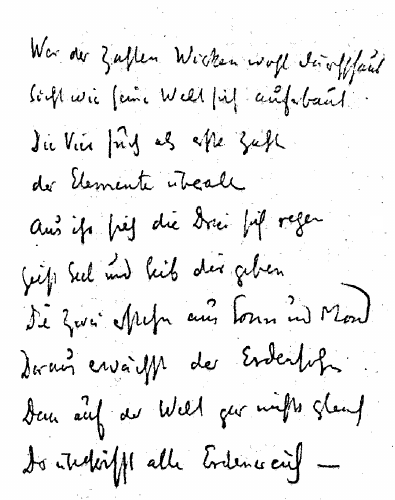 Wer der Zahlen Wirken wohl durchschaut
Sieht wie seine Welt sich auferbaut.
Die Vier sich als erste Zahl
der Elemente überall
Aus ihr sich die Drei sich regen
Geist Seel und Leib der geben
Die Zwei erstehn aus Sonn und Mond
Daraus erwächst der Erdensohn
Dem auf der Welt gar nichts gleich
Da übertrifft alle Erdenreich —